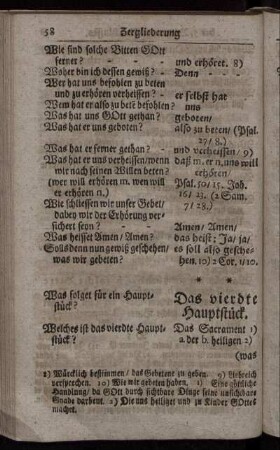 58 Zergliederung
Wie sind solche Bitten GOtt
ferner? - - und erhöret. 8)
Woher bin ich dessen gewiß? - Denn - -
Wer hat uns befohlen zu beten
und zu erhören verheissen? - er selbst hat
Wem hat er also zu bete befohlen? uns
Was hat uns GOtt gethan? - geboten/
Was hat er uns geboten? also zu beten/ (Psal.
27/ 8.)
Was hat er ferner gethan? - und verheissen/ 9)
Was hat er uns verheissen/wenn daß er uns will
wir nach seinen Willen beten? erhören
(wer will erhören m. wen will Psal. 50/ 15. Joh.
er erhören n.) 16/ 23. (2 Sam.
7/ 28.)
Wie schliessen wir unser Gebet/
dabey wir der Erhörung ver-
sichert seyn? - Amen/ Amen/
Was heisset Amen/ Amen? das heist; Ja/ ja/
Solls denn nun gewiß geschehen/ es soll also gesche-
was wir gebeten? hen. 10) 2 Cor. 1/20.
* *
Was folget für ein Haupt- Das vierdte
stück? Hauptstück.
Welches ist das vierdte Haupt- Das Sacrament 1)
stück? a der b. heiligen 2)
(was
8) Würcklich bestimmen/ das Gebetene zu geben. 9) Eydlich
versprechen. 10) Wie wir gebeten haben. 1) Eine göttliche
Handlung/ da GOtt durch sichtbare Dinge seine unsichtbare
Gnade darbeut. 2) Die uns heiliget und zu Kinder GOttes
machet.